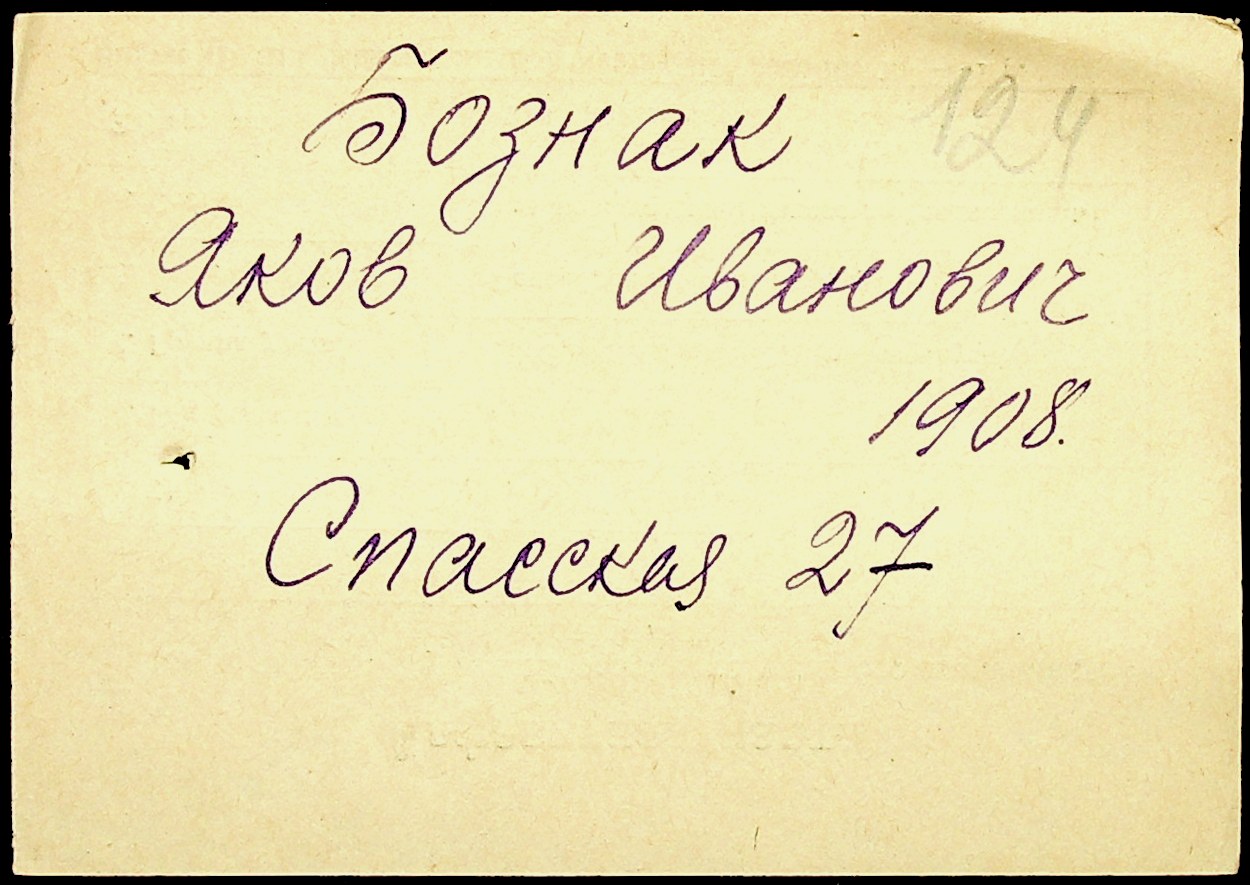 124
Бознак
Яков Иванович
1908.
Спасская 27